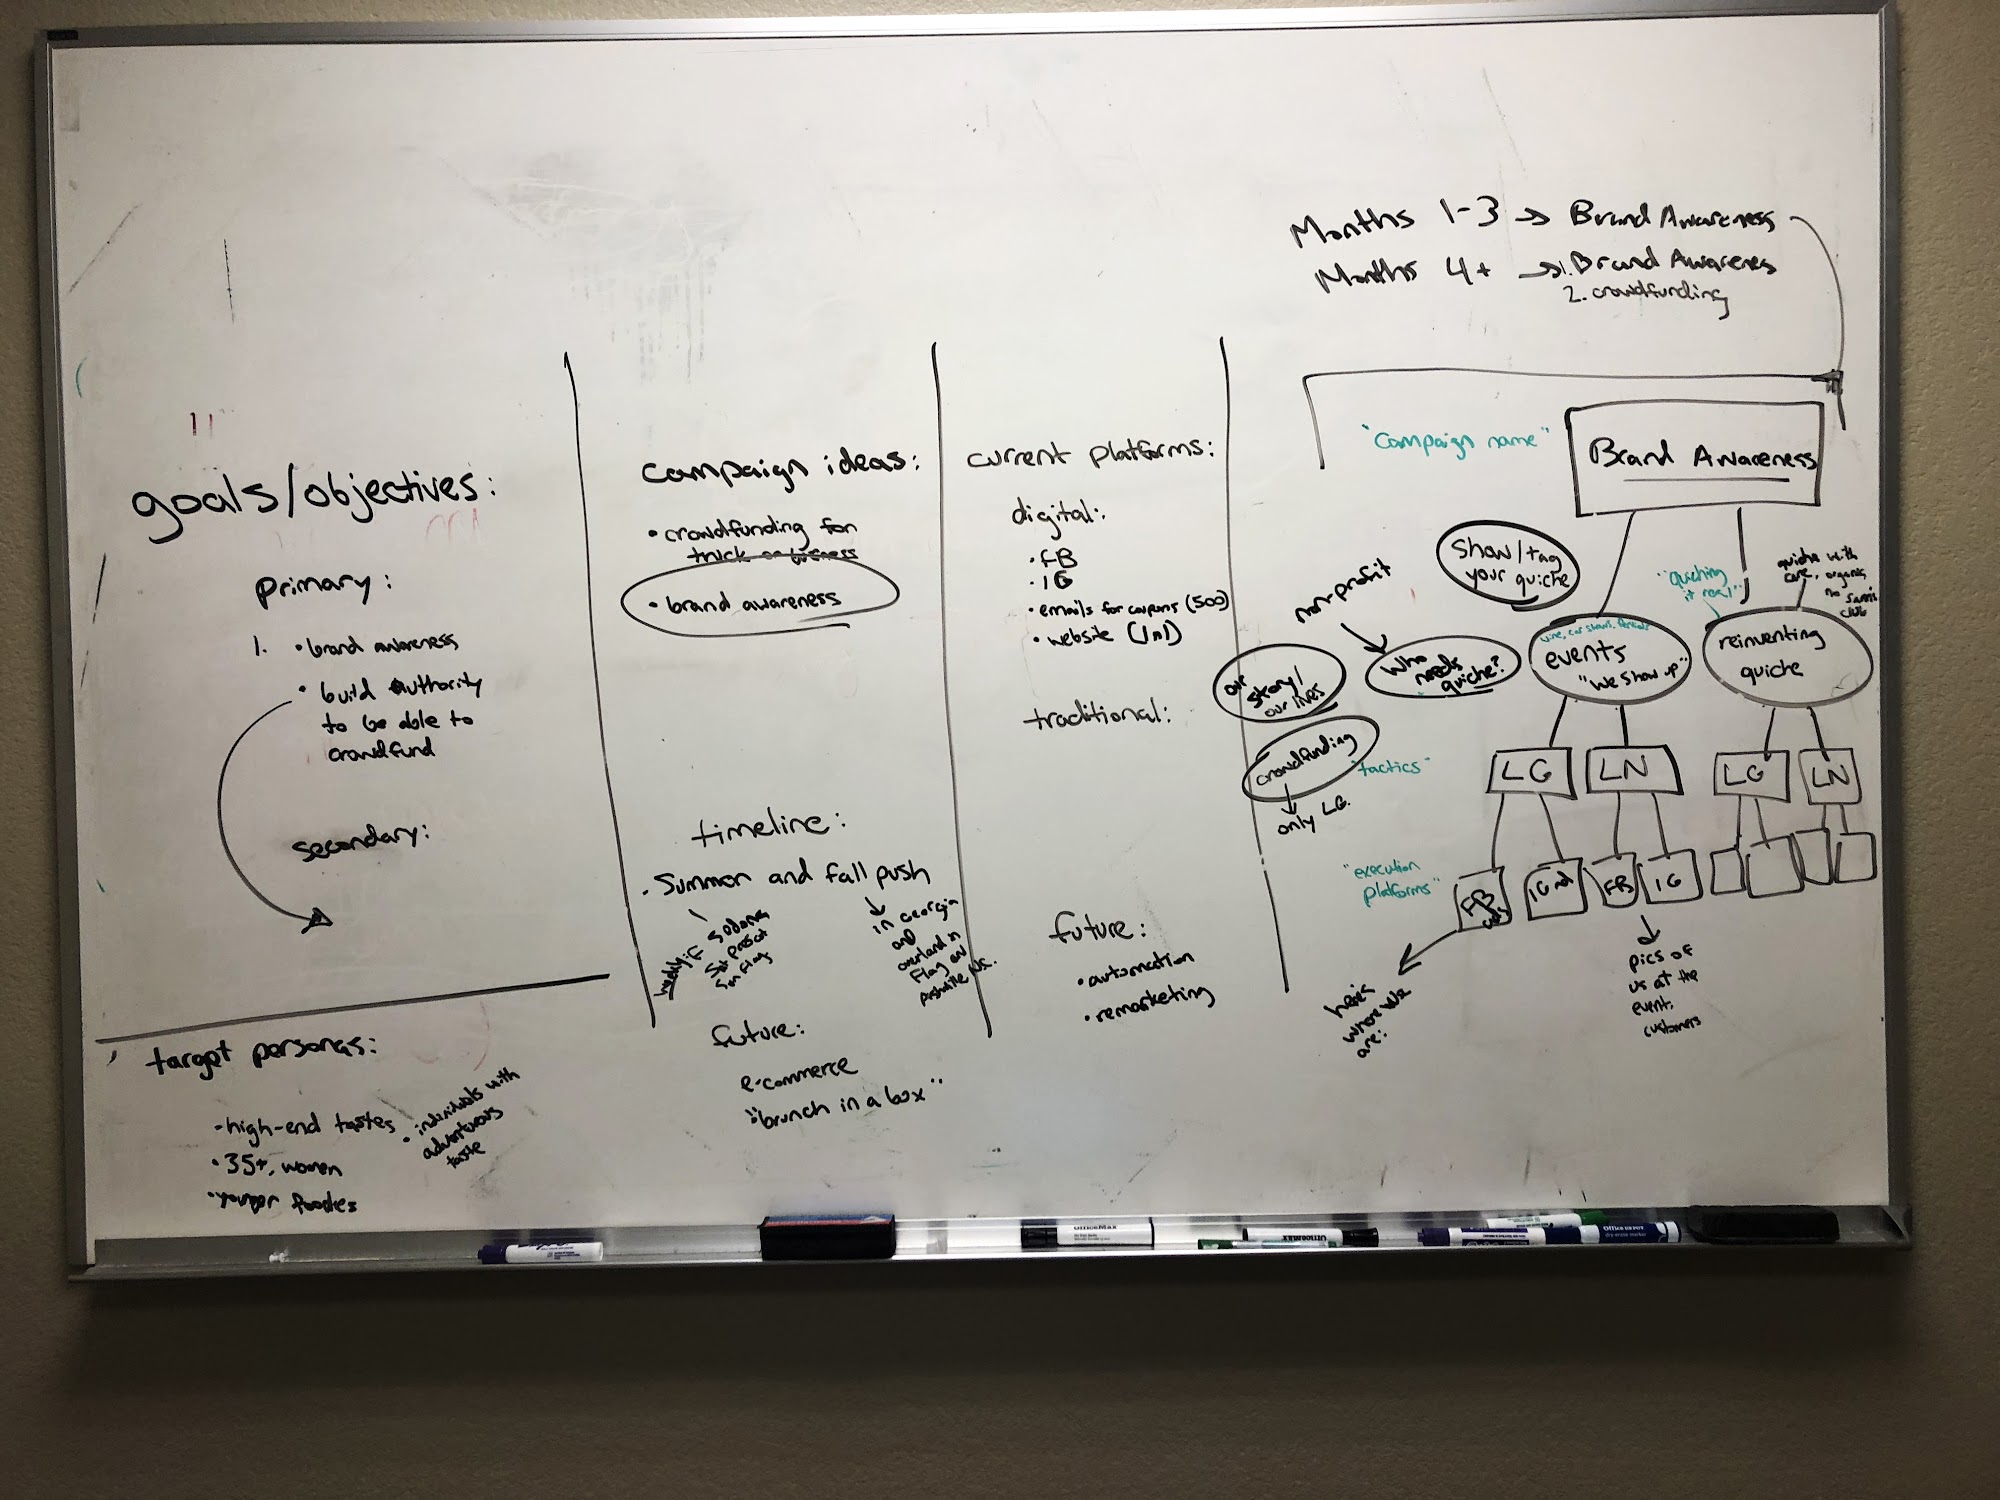 Months 1-3 → Brand Awareness
Months 4+ → 1. Brand Awarenes
2. crowdfunding
goals/objectives:
primary:
1. • brand awareness
• build Authority
to be able to
crowdfund
secondary:
target personas:
• high-end tastes
• 35+, women
• younger foodies
• individuals with
adventurous
taste
campaign ideas:
• crowdfunding for
truck or business
• brand awareness
timeline:
• Summer and fall push
Sedona
Flag
in Georgia
and
overland in
Flag and
future:
e-commerce
"brunch in a box"
current platforms:
digital:
• FB
• IG
• emails for coupons (500)
• website (1n1)
traditional:
future:
• automation
• remarketing
"campaign name"
Brand Awareness
show/tag
your quiche
non-profit
who
needs
quiche?
our
story/
our lives
crowdfunding
only LG.
"tactics"
"execution
platforms"
wine, car shows, festivals
events
"we show up"
"quiching
it real"
quiche with
care, organic,
no
club
reinventing
quiche
LG
LN
LG
LN
FB
IG
FB
IG
here's
where we
are:
pics of
us at the
event,
customers
OfficeMax
OfficeMax
Office DEPOT
dry-erase marker